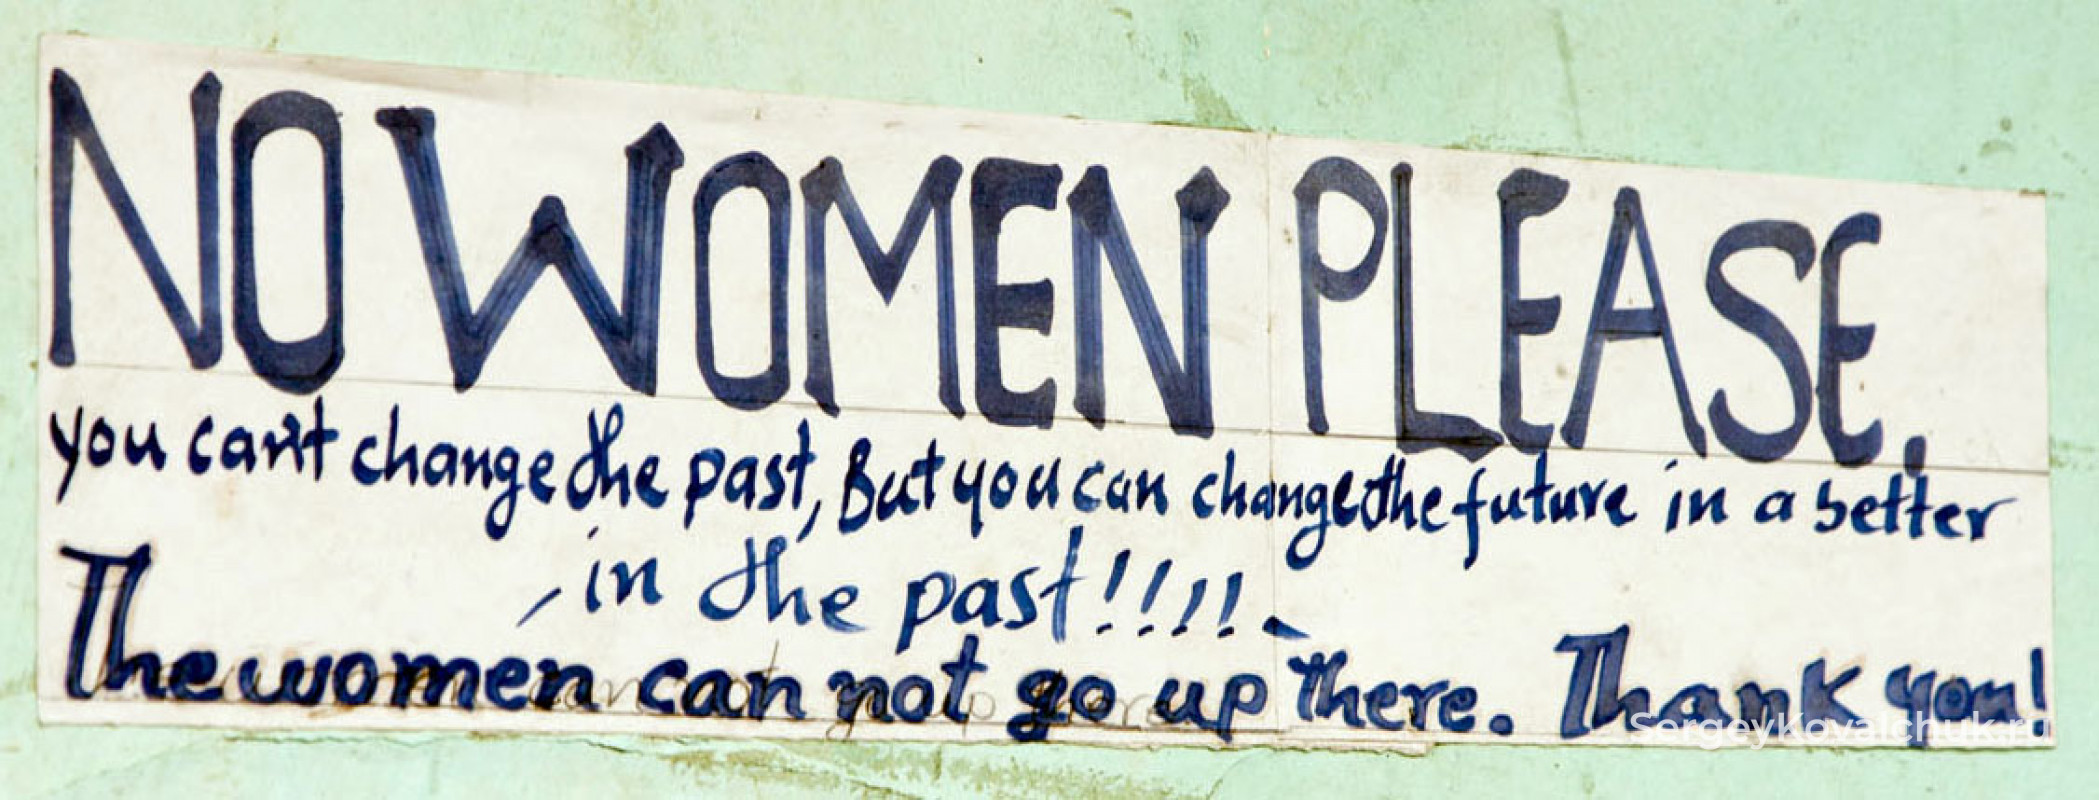 NO WOMEN PLEASE.
you can't change the past, But you can change the future in a better
in the past!!!!
The women can not go up there. Thank you!
SergeyKovalchuk.ru